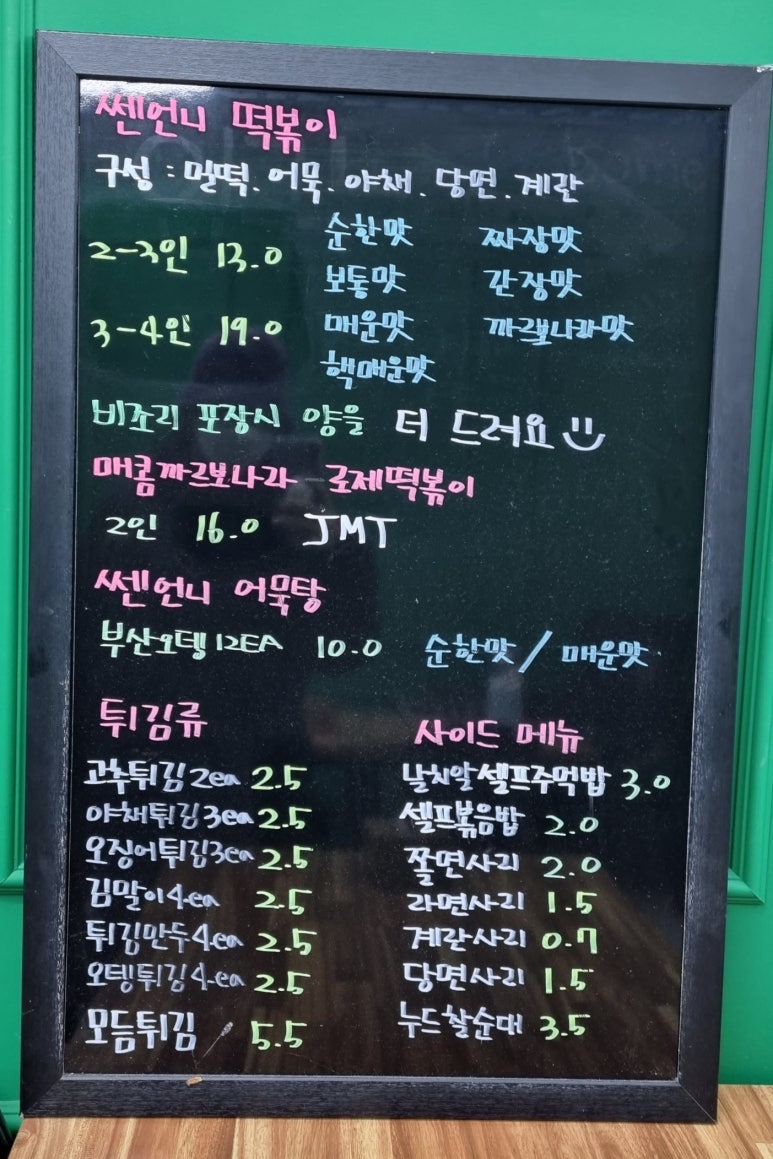 쎈언니 떡볶이
구성 : 밀떡. 어묵. 야채. 당면. 계란
2-3인 13.0 순한맛 짜장맛
보통맛 간장맛
3-4인 19.0 매운맛 까르보나라맛
핵매운맛
비조리 포장시 양을 더 드려요
매콤까르보나라 로제떡볶이
2인 16.0 JMT
쎈언니 어묵탕
부산오뎅 12EA 10.0 순한맛 / 매운맛
튀김류
고추튀김2ea 2.5
야채튀김3ea 2.5
오징어튀김3ea 2.5
김말이4ea 2.5
튀김만두4ea 2.5
오뎅튀김4ea 2.5
모듬튀김 5.5
사이드 메뉴
날치알셀프주먹밥 3.0
셀프볶음밥 2.0
쫄면사리 2.0
라면사리 1.5
계란사리 0.7
당면사리 1.5
누드찰순대 3.5